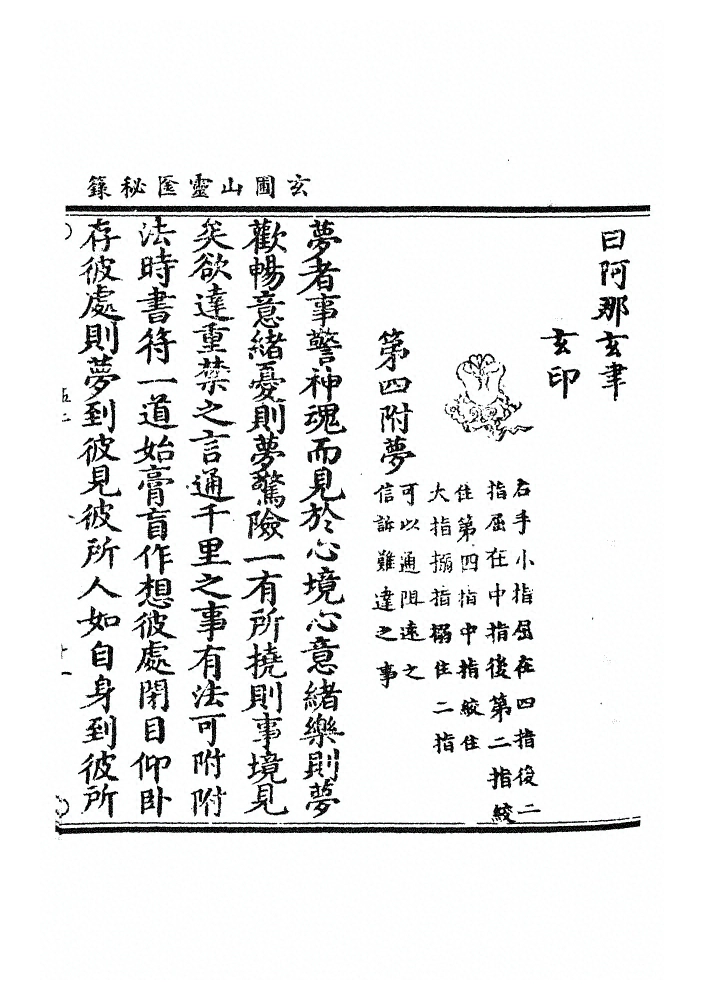 玄圃山靈匧秘籙
曰阿那玄聿
玄印
右手小指屈在四指後二
指屈在中指後第二指絞
住第四指中指絞住
大指搦指搦住二指
第四附夢
可以通阻遠之
信訴難達之事
夢者事警神魂而見於心境心意緒樂則夢
歡暢意緒憂則夢驚險一有所撓則事境見
矣欲達重禁之言通千里之事有法可附附
法時書符一道始膏盲作想彼處閉目仰卧
存彼處則夢到彼見彼所人如自身到彼所